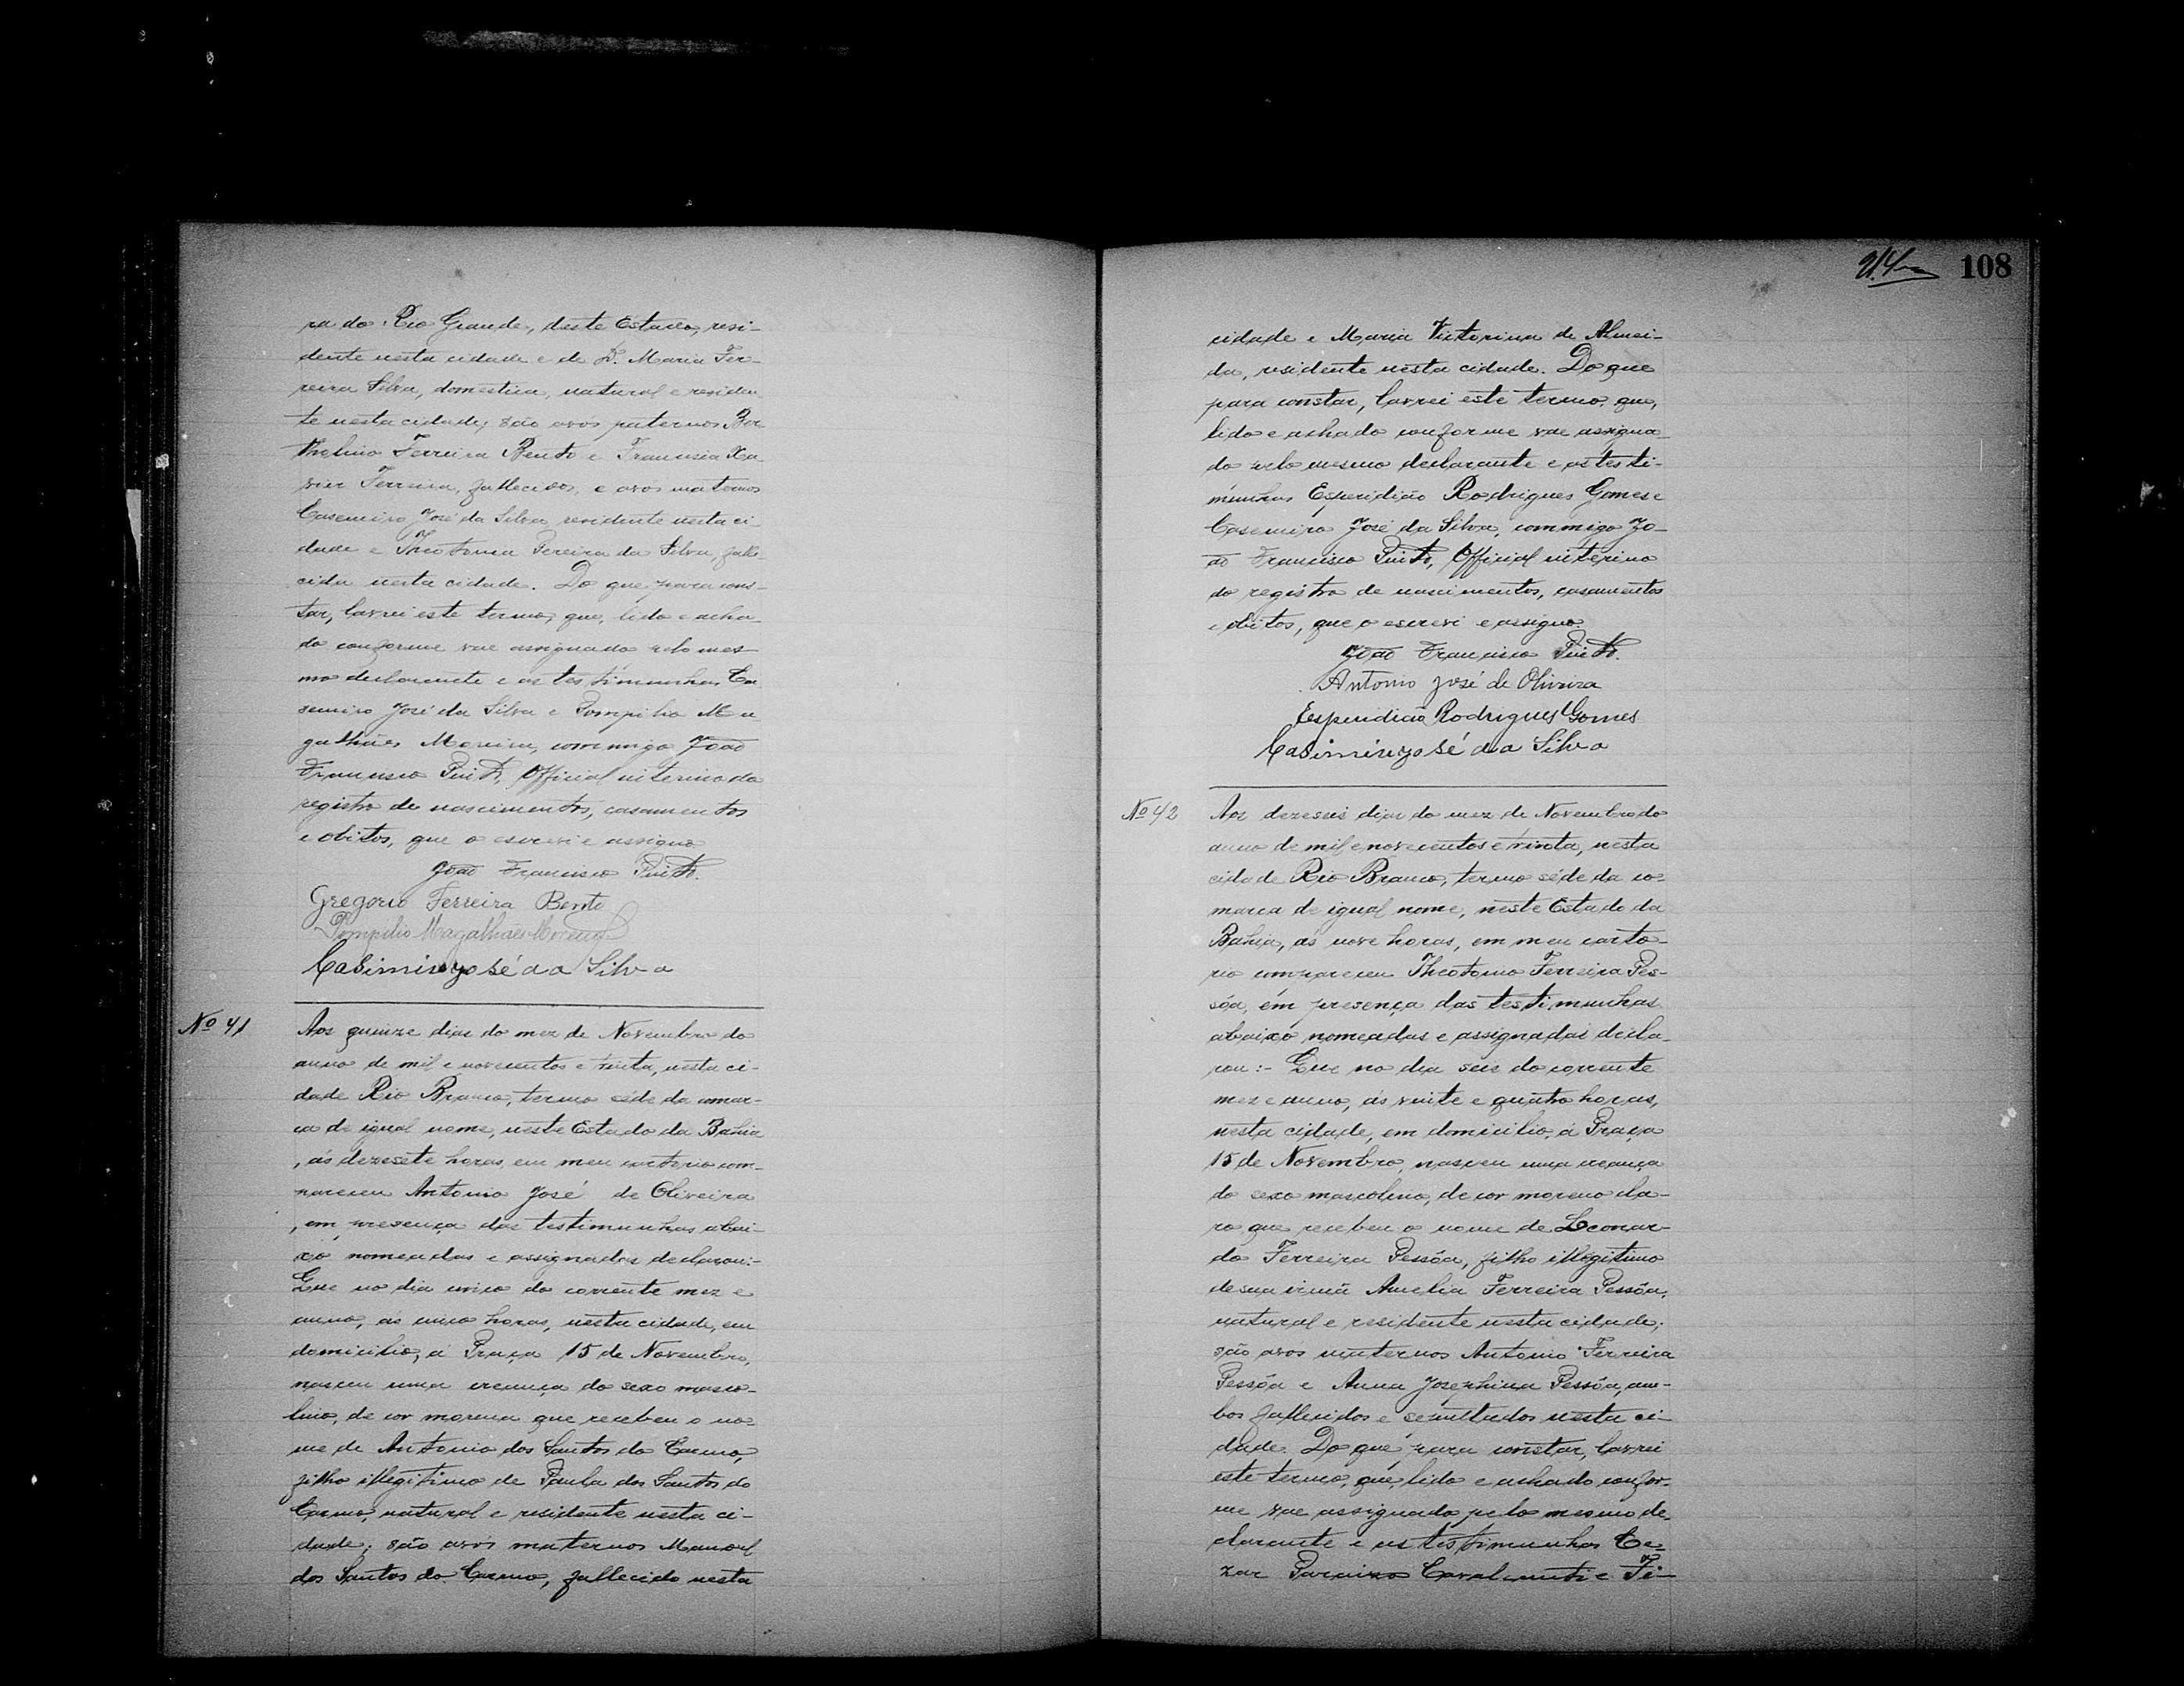 ra do Rio Grande, deste Estado, resi-
dente nesta cidade e de D. Maria Fer-
reira Silva, domestica, natural e residen
te nesta cidade; são avós paternos Ber
thelino Ferreira Bento e Francisca Xa
vier Ferreira, fallecidos, e avos maternos
Casemiro José da Silva, residente nesta ci
dade e Theotonia Pereira da Silva, falle
cida nesta cidade. Do que para cons-
tar, lavrei este termo, que, lido e acha
do conforme vae assignado pelo mes
mo declarante e as testimunhas Ca
semiro José da Silva e Pompilio Ma
galhães Moreira, commigo João
Francisco Pinto, Official interino do
registro de nascimentos, casamentos
e obitos, que o escrevi e assigno
João Francisco Pinto.
Gregorio Ferreira Bento
Pompilio Magalhães Moreira
Casimiro José da Silva
Nº 41
Aos quinze dias do mez de Novembro do
anno de mil e novecentos e trinta, nesta ci-
dade Rio Branco, termo séde da comar-
ca de igual nome, neste Estado da Bahia
, ás dezesete horas, em meu cartorio com-
pareceu Antonio José de Oliveira
, em presença das testimunhas abai-
xo nomeadas e assignadas declarou:-
Que no dia cinco do corrente mez e
anno, ás cinco horas, nesta cidade, em
domicilio, á Praça 15 de Novembro,
nasceu uma creança do sexo mascu-
lino, de cor morena que recebeu o no-
me de Antonio dos Santos do Carmo,
filho illegitimo de Paula dos Santos do
Carmo, natural e residente nesta ci-
dade; são avós maternos Manoel
dos Santos do Carmo, fallecido nesta
108
cidade e Maria Victorina de Almei-
da, residente nesta cidade. Do que
para constar, lavrei este termo, que,
lido e achado conforme vae assigna-
do pelo mesmo declarante e as testi-
munhas Esperidião Rodrigues Gomes e
Casemiro José da Silva, commigo Jo-
ão Francisco Pinto, Official interino
do registro de nascimentos, casamentos
e obitos, que o escrevi e assigno.
João Francisco Pinto.
Antonio José de Oliveira
Esperidião Rodrigues Gomes
Casimiro José da Silva
Nº 42
Aos dezeseis dias do mez de Novembro do
anno de mil e novecentos e trinta, nesta
cidade Rio Branco, termo séde da co-
marca de igual nome, neste Estado da
Bahia, ás nove horas, em meu carto-
rio compareceu Theotonio Ferreira Pes-
sôa, em presença das testimunhas
abaixo nomeadas e assignadas decla-
rou:- Que no dia seis do corrente
mez e anno, ás vinte e quatro horas,
nesta cidade, em domicilio, á Praça
15 de Novembro, nasceu uma creança
do sexo masculino, de cor moreno cla-
ro que recebeu o nome de Leonar-
do Ferreira Pessôa, filho illegitimo
de sua irmã Amelia Ferreira Pessôa,
natural e residente nesta cidade;
são avos maternos Antonio Ferreira
Pessôa e Anna Josephina Pessôa, am-
bos fallecidos e sepultados nesta ci-
dade. Do que, para constar, lavrei
este termo, que, lido e achado confor-
me vae assignado pelo mesmo de-
clarante e as testimunhas Ce-
zar Paraizo Cavalcanti e Ti-